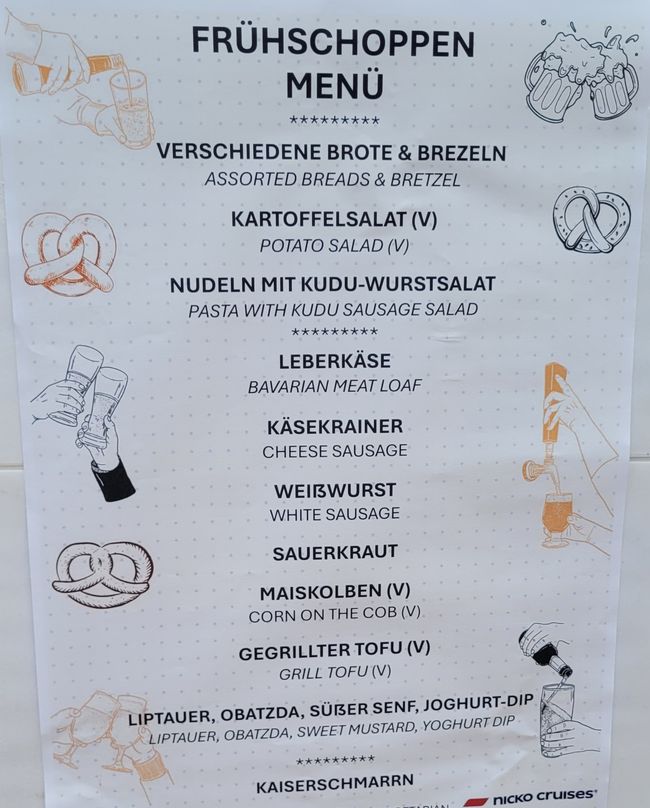 FRÜHSCHOPPEN
MENÜ
*********
VERSCHIEDENE BROTE & BREZELN
ASSORTED BREADS & BRETZEL
KARTOFFELSALAT (V)
POTATO SALAD (V)
NUDELN MIT KUDU-WURSTSALAT
PASTA WITH KUDU SAUSAGE SALAD
*********
LEBERKÄSE
BAVARIAN MEAT LOAF
KÄSEKRAINER
CHEESE SAUSAGE
WEIßWURST
WHITE SAUSAGE
SAUERKRAUT
MAISKOLBEN (V)
CORN ON THE COB (V)
GEGRILLTER TOFU (V)
GRILL TOFU (V)
LIPTAUER, OBATZDA, SÜßER SENF, JOGHURT-DIP
LIPTAUER, OBATZDA, SWEET MUSTARD, YOGHURT DIP
*********
KAISERSCHMARRN
nicko cruises®